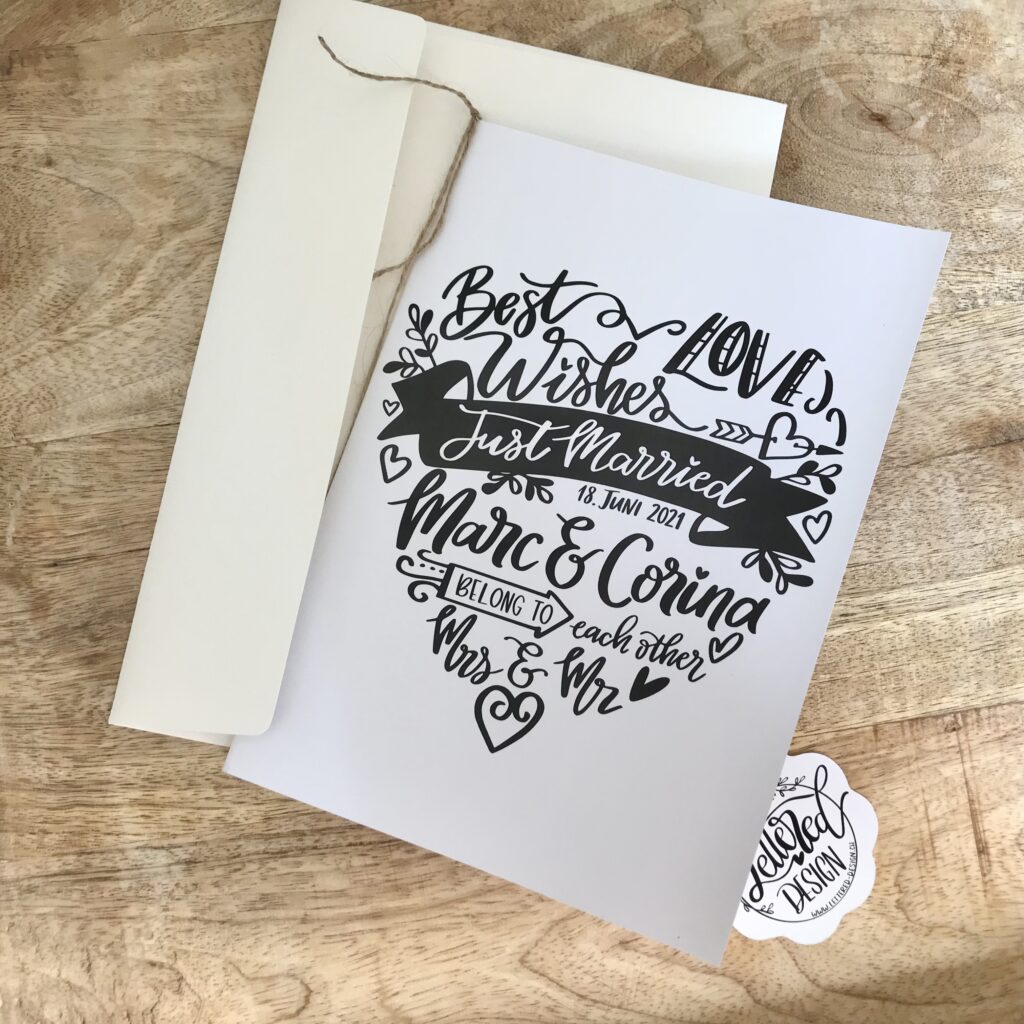 Best
LOVE
Wishes
Just Married
18. JUNI 2021
Marc & Corina
BELONG TO
each other
Mrs & Mr
Lettered
DESIGN
WWW.LETTERED-DESIGN.CH